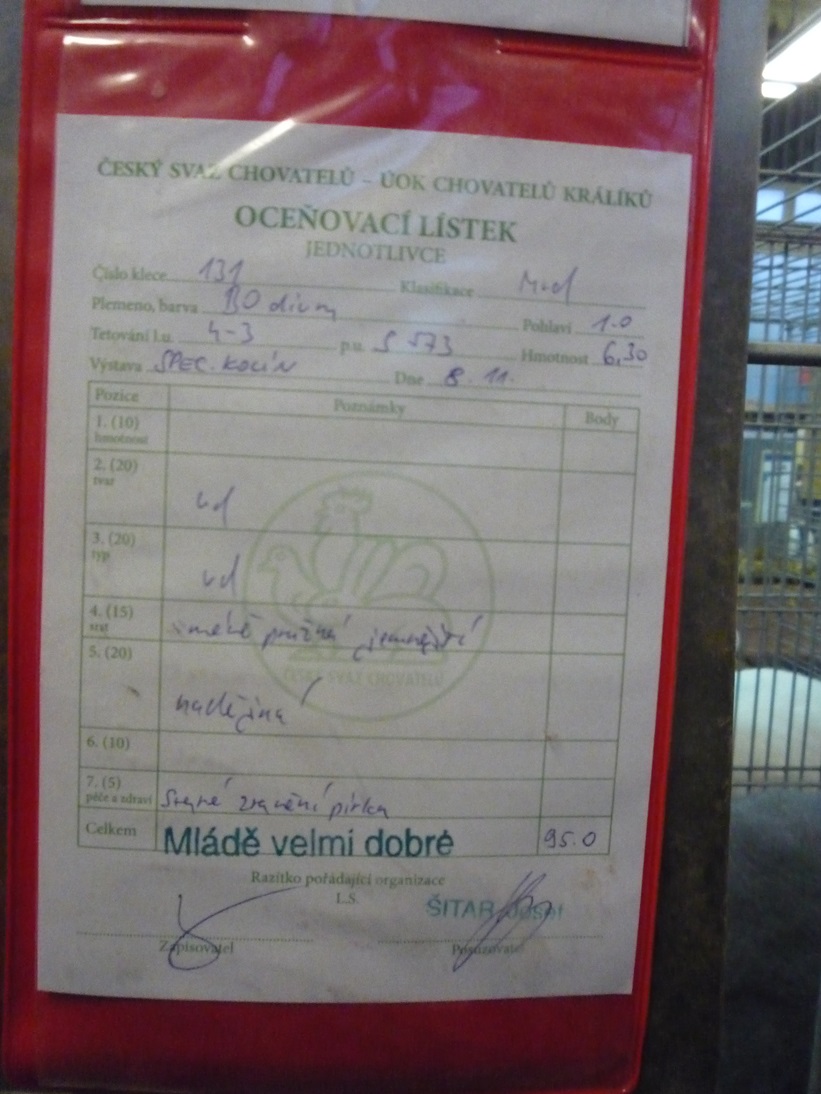 ČESKÝ SVAZ CHOVATELŮ – ÚOK CHOVATELŮ KRÁLÍKŮ
OCEŇOVACÍ LÍSTEK
JEDNOTLIVCE
Číslo klece 131 Klasifikace
Plemeno, barva BO divum Pohlaví 1.0
Tetování l.u. 4-3 p.u. S 573 Hmotnost 6,30
Výstava SPEC. KOLÍN Dne 8. 11.
Pozice Poznámky Body
1. (10)
hmotnost
2. (20)
tvar
vd
3. (20)
typ
vd
4. (15)
srst
méně pružná jemnější
5. (20)
nadějná
6. (10)
7. (5)
péče a zdraví
zranění pírka
Celkem Mládě velmi dobré 95.0
Razítko pořádající organizace
L.S.
ŠITAR Josef
Zapisovatel Posuzovatel
ČESKÝ SVAZ CHOVATELŮ